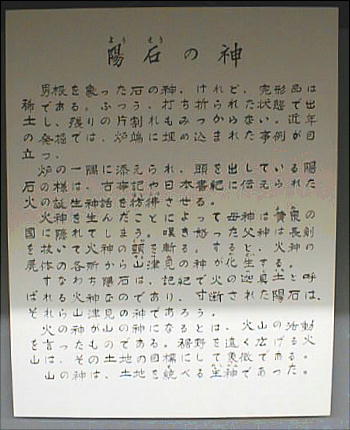 ようせき
陽石の神
男根を象った石の神。けれど、完形品は
稀である。ふつう、打ち折られた状態で出
土し、残りの片割れもみつからない。近年
の発掘では、炉端に埋め込まれた事例が目
立つ。
炉の一隅に添えられ、頭を出している陽
石の様は、古事記や日本書紀に伝えられた
火の誕生神話を彷彿させる。
火神を生んだことによって母神は黄泉の
國に隠れてしまう。嘆き怒った父神は長剣
を抜いて火神の頸を斬る。すると、火神の
屍体の各所から山津見の神が化生する。
すなわち陽石は、記紀で火の迦具土と呼
ばれる火神なのであり、寸断された陽石は、
それら山津見の神であろう。
火の神が山の神になるとは、火山の活動
を言ったものである。裾野を遠く広げる火
山は、その土地の目標にして象徴である。
山の神は、土地を統べる神であった。